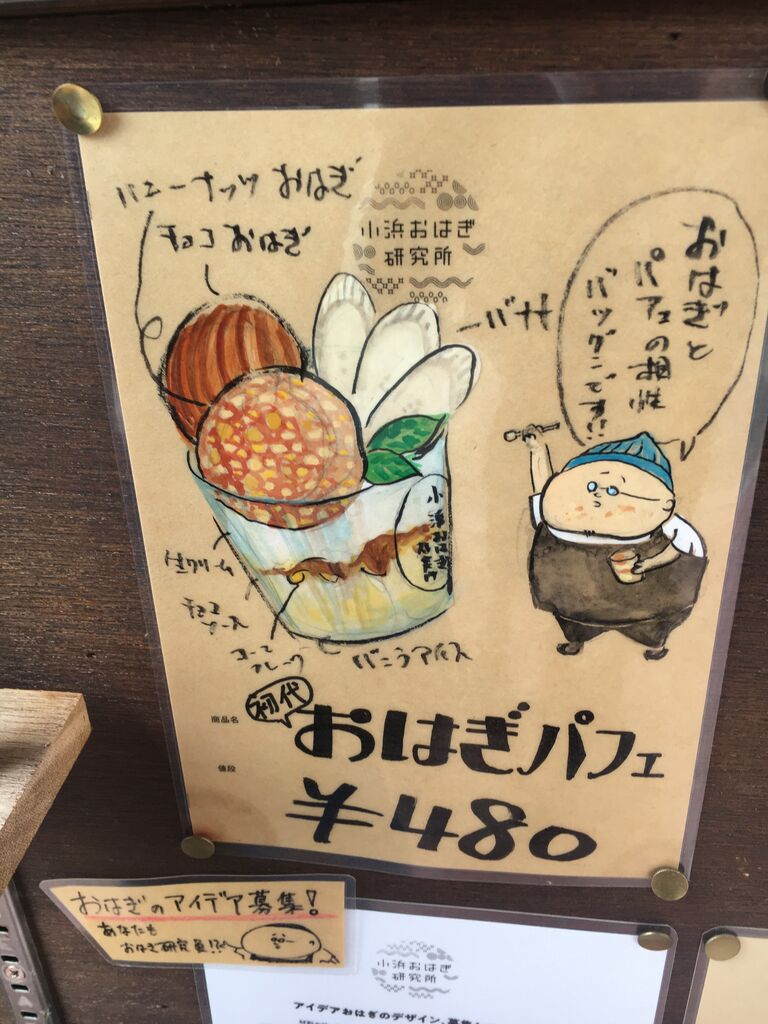 ハニーナッツ おはぎ
チョコ おはぎ
小浜おはぎ
研究所
バナナ
おはぎと
パフェの相性
バツグンです!!
小浜おはぎ
研究所
生クリーム
チョコ
ソース
コーン
フレーク
バニラアイス
商品名
初代
おはぎパフェ
値段
¥480
おはぎのアイデア募集!
あなたも
おはぎ研究員!?
小浜おはぎ
研究所
アイデアおはぎのデザイン、募集